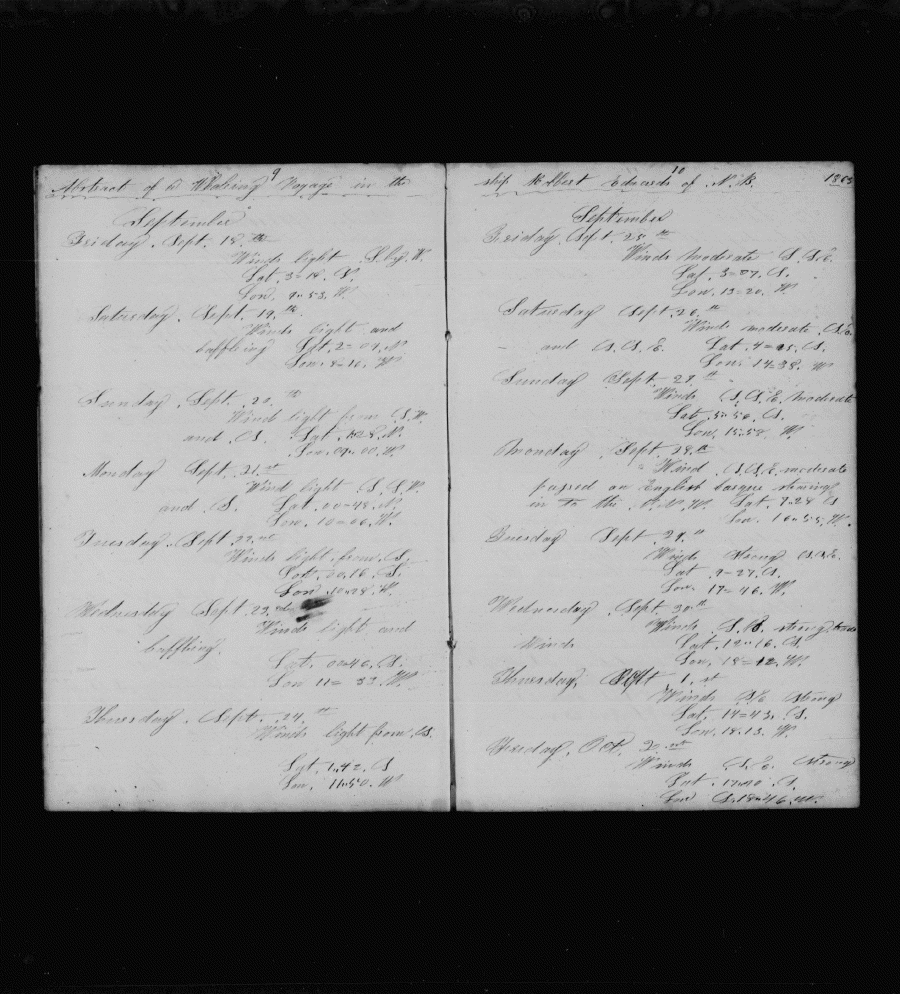 9
Abstract of a Whaleing Voyage in the
September
Friday, Sept. 18.th
Winds light S. by W.
Lat. 3=18. N.
Lon. 9=53. W.
Saturday, Sept. 19.th
Winds light and
baffling Lat. 2=09. N
Lon. 8=16. W
Sunday, Sept. 20.th
Winds light from S.W.
and S. Lat. N.
Lon. 09=00. W
Monday Sept. 21.st
Winds light S.S.W.
and S. Lat. 00=48. N.
Lon. 10=06. W.
Tuesday, Sept. 22.nd
Winds light from S.
Lat. 00.16. S.
Lon 10=28. W.
Wednesday Sept. 23.rd
Winds light and
baffling.
Lat. 00=46. S.
Lon 11= 33. W.
Thursday, Sept. 24.th
Winds light from S.
Lat. 1=42. S
Lon. 11=50. W
10
ship Albert Edwards of N.B. 1863
September
Friday, Sept. 25.th
Winds moderate S.S.E.
Lat. 3=07. S.
Lon. 13=20. W.
Saturday Sept. 26.th
Winds moderate, S.E.
and S.S.E. Lat. S.
Lon. 14=38. W
Sunday Sept. 27.th
Winds S.S.E. moderate
Lat. 5=56. S.
Lon. 15=58. W.
Monday, Sept. 28.th
Wind S.S.E. moderate
passed an English barque steering
in to the N.N.W. Lat. 7=28 S
Lon. 16=55. W.
Tuesday Sept. 29.th
Winds strong S.S.E.
Lat 9=27. S.
Lon. 17=46. W.
Wednesday, Sept. 30.th
Winds S.E. strong
Wind Lat. 12=16. S.
Lon. 18=12. W.
Thursday, 1.st
Winds S/E strong
Lat. 14=43. S.
Lon. 18.13. W
Friday, Oct. 2.nd
Winds S.E. strong
Lat. S.
Lon 18=46. W.